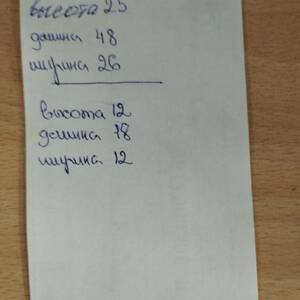 высота 25
длина 48
ширина 26
высота 12
длинна 18
ширина 12